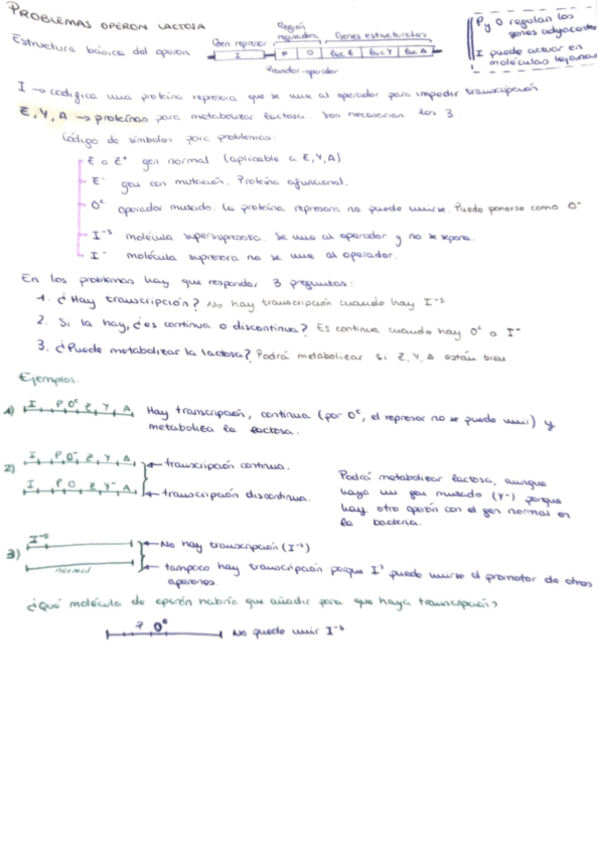 PROBLEMAS OPERON LACTOSA
Estructura básica del operon
Gen represor
Región reguladora
Genes estructurales
I
P
O
Lac Z
Lac Y
Lac A
Promotor-operador
P y O regulan los
genes adyacentes
I puede actuar en
moléculas lejanas
I → codifica una proteína represora que se une al operador para impedir transcripción
Z, Y, A → proteínas para metabolizar lactosa. Son necesarios los 3
Código de símbolos para problemas:
Z o Z⁺ gen normal (aplicable a Z, Y, A)
Z⁻ gen con mutación. Proteína afuncional.
Oᶜ operador mutado. La proteína represora no puede unirse. Puede ponerse como O⁻
I⁻ˢ molécula supersupresora. Se une al operador y no se separa.
I⁻ molécula supresora no se une al operador.
En los problemas hay que responder 3 preguntas:
1. ¿Hay transcripción? No hay transcripción cuando hay I⁻ˢ
2. Si la hay, ¿es continua o discontinua? Es continua cuando hay Oᶜ o I⁻
3. ¿Puede metabolizar la lactosa? Podrá metabolizar si Z, Y, A están bien.
Ejemplos:
1) I P Oᶜ Z Y A Hay transcripción, continua (por Oᶜ, el represor no se puede unir) y
metaboliza la lactosa.
2) I P O⁻ Z Y A transcripción continua.
I P O Z Y⁻ A transcripción discontinua.
Podrá metabolizar lactosa, aunque
haya un gen mutado (Y⁻) porque
hay otro operón con el gen normal en
la bacteria.
3) I⁻ˢ No hay transcripción (I⁻ˢ)
normal tampoco hay transcripción porque Iˢ puede unirse al promotor de otros
operones
¿Qué molécula de operón habría que añadir para que haya transcripción?
P Oᶜ No puede unir I⁻ˢ